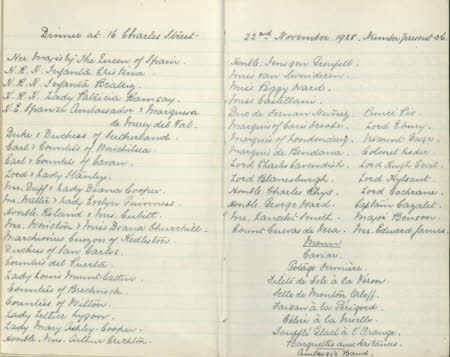 Dinner at 16 Charles Street
Her Majesty the Queen of Spain
H.R.H. Infanta Cristina
H.R.H. Infanta Beatriz
H.R.H. Lady Patricia Ramsay
H.E. Spanish Ambassador & Marquesa
de Merry del Val.
Duke & Duchess of Sutherland
Earl & Countess of Winchilsea
Earl & Countess of Cavan
Lord & Lady Stanley
Mr. Duff & Lady Diana Cooper
Mr. Walter & Lady Evelyn Guinness
Honble Roland & Mrs. Cubitt
Mr. Winston & Miss Diana Churchill
Marchioness Curzon of Kedleston
Duchess of San Carlos
Countess del Puerto
Lady Louis Mountbatten
Countess of Brecknock
Countess of Wilton
Lady Lettice Lygon
Lady Mary Ashley-Cooper
Honble Mrs. Arthur Crichton
22nd November 1928. Number present 56
Honble Imogen Grenfell
Miss van Swinderen
Miss Peggy Ward
Miss Castellain
Duc de Fernan Nuñez Prince Pio
Marquis of Carisbrooke Lord Ebury
Marquis of Londonderry Viscount Gage
Marquis de Bendana Colonel
Lord Charles Cavendish Lord Hugh Cecil
Lord Blanesburgh Lord Kylsant
Honble Charles Rhys Lord Cochrane
Honble George Ward Captain Cazalet
Mr. Lancelot Smith Major Benson
Count Cuevas de Vera Mr. Edward James
Menu
Caviar
Potage Fermière
Filets de Sole à la Véron
Selle de Mouton Orloff
Faisan à la Périgord
Céleri à la Moelle
Soufflé Glacé à l'Orange
Barquettes aux laitances
Ambrose's Band